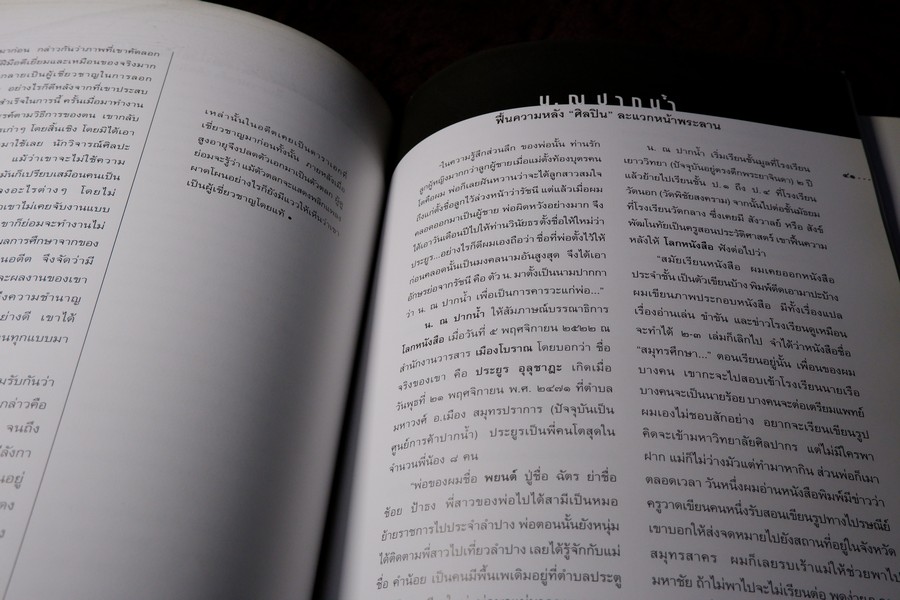 มาก่อน กล่าวกันว่าภาพที่เขาคัดลอก
ฝีมือดีเยี่ยมและเหมือนของจริงมาก
กลายเป็นผู้เชี่ยวชาญในการลอก
อย่างไรก็ดีหลังจากที่เขาประสบ
สำเร็จในการนี้ ครั้นเมื่อมาทำงาน
รค์ตามวิธีการของตน เขากลับ
เก่าๆ โดยสิ้นเชิง โดยมิได้เอา
มาใช้เลย นักวิจารณ์ศิลปะ
แม้ว่าเขาจะไม่ใช้ความ
มันก็เปรียบเสมือนคนเป็น
องอะไรต่างๆ โดยไม่
เขาไม่เคยจับงานแบบ
ขาก็ย่อมจะทำงานไม่
ผลการศึกษาจากของ
นอดีต จึงจัดว่ามี
ะผลงานของเขา
ถึงความชำนาญ
อย่างดี เขาได้
นทุกแบบมา
มรับกันว่า
กล่าวคือ
จนถึง
ลังกา
อยู่
เหล่านั้นในอดีตเคยเป็นดาราเอกที่
เชี่ยวชาญมาก่อนทั้งนั้น ภายหลังเมื่อ
สูงอายุจึงปลดตัวเอกมาเป็นตัวตลก ผู้ดู
ย่อมจะรู้ว่า แม้ตัวตลกจะแสดงพลิกแพลง
ผาดโผนอย่างไรก็ยังมีแววให้เห็นว่าเขา
เป็นผู้เชี่ยวชาญโดยแท้ •
น. ณ ปากน้ำ
ฟื้นความหลัง “ศิลปิน” ละแวกหน้าพระลาน
“ในความรู้สึกส่วนลึก ของพ่อนั้น ท่านรัก
ลูกผู้หญิงมากกว่าลูกผู้ชายเมื่อแม่ตั้งท้องบุตรคน
โตคือผม พ่อก็เลยฝันหวานว่าจะได้ลูกสาวสมใจ
ถึงแก่ตั้งชื่อลูกไว้ล่วงหน้าว่ารัชนี แต่แล้วเมื่อผม
คลอดออกมาเป็นผู้ชาย พ่อผิดหวังอย่างมาก จึง
ได้เอาวันเดือนปีไปให้ท่านวินัยธร ตั้งชื่อให้ใหม่ว่า
ประยูร...อย่างไรก็ดีผมเองถือว่า ชื่อที่พ่อตั้งไว้ให้
ก่อนคลอดนั้นเป็นมงคลนามอันสูงสุด จึงได้เอา
อักษรย่อจากรัชนี คือ ตัว น. มาตั้งเป็นนามปากกา
ว่า น. ณ ปากน้ำ เพื่อเป็นการคารวะแก่พ่อ...”
น. ณ ปากน้ำ ให้สัมภาษณ์บรรณาธิการ
โลกหนังสือ เมื่อวันที่ ๕ พฤศจิกายน ๒๕๒๒ ณ
สำนักงานวารสาร เมืองโบราณ โดยบอกว่า ชื่อ
จริงของเขา คือ ประยูร อุลุชาฎะ เกิดเมื่อ
วันพุธที่ ๒๑ พฤศจิกายน พ.ศ. ๒๔๗๑ ที่ตำบล
มหาวงศ์ อ.เมือง สมุทรปราการ (ปัจจุบันเป็น
ศูนย์การค้าปากน้ำ) ประยูรเป็นพี่คนโตสุดใน
จำนวนพี่น้อง ๘ คน
“พ่อของผมชื่อ พยนต์ ปู่ชื่อ ฉัตร ย่าชื่อ
ช้อย ป้าธง พี่สาวของพ่อไปได้สามีเป็นหมอ
ย้ายราชการไปประจำลำปาง พ่อตอนนั้นยังหนุ่ม
ได้ติดตามพี่สาวไปเที่ยวลำปาง เลยได้รู้จักกับแม่
ชื่อ คำน้อย เป็นคนมีพื้นเพเดิมอยู่ที่ตำบลประตู
น. ณ ปากน้ำ เริ่มเรียนชั้นมูลที่โรงเรียน
เยาววิทยา (ปัจจุบันอยู่ตรงตึกพระยาจินดา) ๒ ปี
แล้วย้ายไปเรียนชั้น ป.๑ ถึง ป.๔ ที่โรงเรียน
วัดนอก (วัดพิชัยสงคราม) จากนั้นไปต่อชั้นมัธยม
ที่โรงเรียนวัดกลาง ซึ่งเคยมี สังวาลย์ หรือ สังข์
พัฒโนทัยเป็นครูสอนประวัติศาสตร์ เขาฟื้นความ
หลังให้ โลกหนังสือ ฟังต่อไปว่า
“สมัยเรียนหนังสือ ผมเคยออกหนังสือ
ประจำชั้น เป็นตัวเขียนบ้าง พิมพ์ดีดเอามาปะบ้าง
ผมเขียนภาพประกอบหนังสือ มีทั้งเรื่องแปล
เรื่องอ่านเล่น ขำขัน และข่าวโรงเรียนดูเหมือน
จะทำได้ ๒-๓ เล่มก็เลิกไป จำได้ว่าหนังสือชื่อ
“สมุทรศึกษา...” ตอนเรียนอยู่นั้น เพื่อนของผม
บางคน เขากะจะไปสอบเข้าโรงเรียนนายเรือ
บางคนจะเป็นนายร้อย บางคนจะต่อเตรียมแพทย์
ผมเองไม่ชอบสักอย่าง อยากจะเรียนเขียนรูป
คิดจะเข้ามหาวิทยาลัยศิลปากร แต่ไม่มีใครพา
ฝาก แม่ก็ไม่ว่างมัวแต่ทำมาหากิน ส่วนพ่อก็เมา
ตลอดเวลา วันหนึ่งผมอ่านหนังสือพิมพ์มีข่าวว่า
ครูวาดเขียนคนหนึ่งรับสอนเขียนรูปทางไปรษณีย์
เขาบอกให้ส่งจดหมายไปยังสถานที่อยู่ในจังหวัด
สมุทรสาคร ผมก็เลยรบเร้าแม่ให้ช่วยพาไป
มหาชัย ถ้าไม่พาไปจะไม่เรียนต่อ